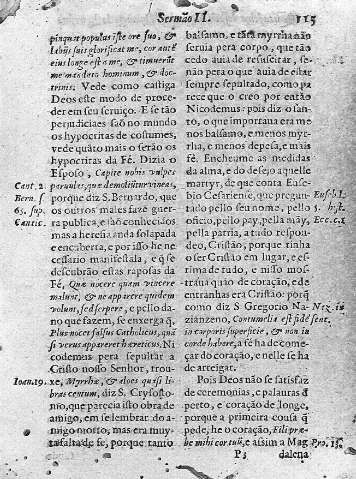 Sermão II. 115
pinquat populus iste ore suo, &
labijs suis glorificat me, cor autẽ
eius longe est a me, & timuerũt
me mandato hominum, & doc-
trinis. Vede como castiga
Deos este modo de proce-
der em seu seruiço. E se tão
perjudiciaes são no mundo
os hypocritas de costumes,
vede quáto mais o serão os
hypocritas da Fé. Dizia o
Esposo, Capite nobis vulpes
paruulas, quæ demoliũtur vineas,
porque diz S. Bernardo, que
os outros males fazẽ guer-
ra publica, e são conhecidos
mas a heresia anda solapada
e encuberta, e por isso he ne
cessario manifestala, e q̃ se
descubrão estas raposas da
Fé, Quæ nocere quam vincere
malunt, & ne apparere quidem
volunt, sed serpere, e pello da-
no que fazem, se enxerga q̃.
Plus nocet falsus Catholicus, quã
si verus appareret hæreticus. Ni
codemus pera sepultar a
Cristo nosso Senhor, trou-
xe, Myrrhæ, & aloes quasi li-
bras centum, diz S. Crysosto-
mo, que parecia isto obra de
amigo, em se lembrar do a-
migo morto, mas era muy-
ta falta de fe, porque tanto
Cant. 2.
Bern. s.
65. sup.
Cantic.
Ioan. 19.
balsamo, e tãta myrrha não
seruia pera corpo, que tão
cedo auia de resuscitar, se-
não pera o que auia de estar
sempre sepultado, como pa
rece que o creo por entáo
Nicodemus: pois diz o San-
to, o que importaua era me-
nos balsamo, e menos myr-
rha, e menos depesa, e mais
fè. Encheume as medidas
da alma, e do desejo aquelle
martyr, de que conta Euse-
bio Cesariense, que pregun-
tado pello seu nome, pello
officio, pello pay, pella mãy,
pella patria, a tudo respon-
deo, Cristão, porque tinha
o ser Cristão em lugar, e es-
tima de tudo, e nisso mos-
traua que do coração, e de
entranhas era Cristão: porq̃
como diz S. Gregorio Na-
zianzeno, Contumelia est fidei sent.
in corporis superficie, & non in
corde habere, a fé ha de come-
çar do coração, e nelle se ha
de arreigar.
Pois Deos não se satisfaz
de ceremonias, e palauras d'
perto, e coração de longe,
porque a primeira cousa q̃
pede, he o coração, Fili præ-
be mihi cor tuũ, e assim a Mag
Euseb. l.
5. hist.
Ecc. c.1
Naz. in
Pro. 23.
P 3 dalena